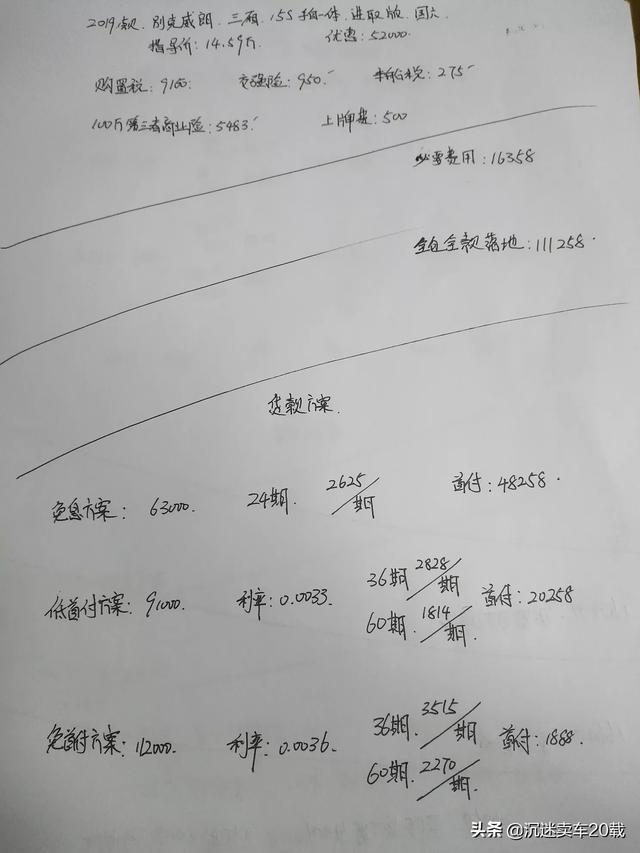 2019款. 别克威朗. 三厢. 15S 手自一体. 进取版. 国六
指导价: 14.59万. 优惠: 52000.
购置税: 9100. 交强险: 950. 车船税: 275
100万第三者商业险: 5483. 上牌费: 500
必要费用: 16358
全包全款落地: 111258.
贷款方案.
免息方案: 63000. 24期. 2625/期 首付: 48258.
低首付方案: 91000. 利率: 0.0033. 36期 2828/期 首付: 20258
60期. 1814/期.
免首付方案: 112000. 利率: 0.0036. 36期. 3515/期 首付: 1888.
60期. 2270/期.
头条 @沉迷卖车20载